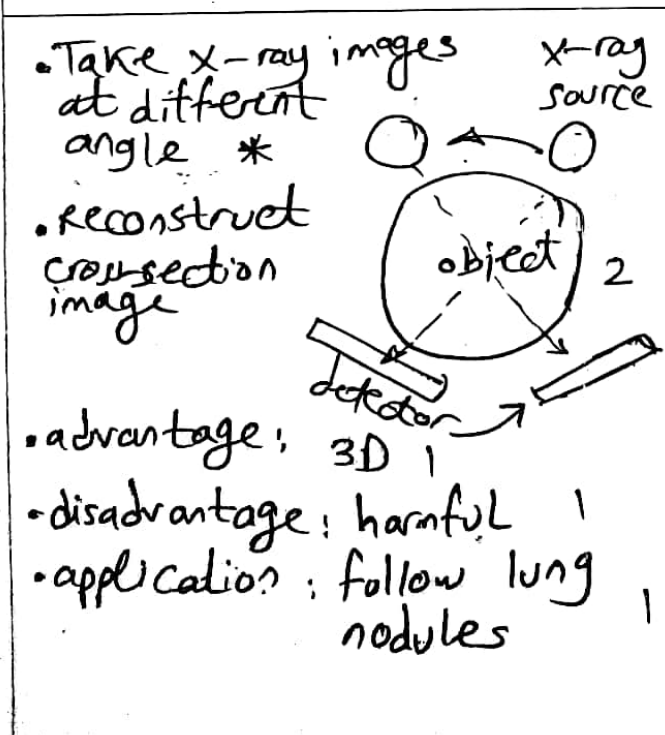 •Take x-ray images
at different
angle *
•Reconstruct
cross-section
image
x-ray
source
object
2
detector
•advantage: 3D 1
•disadvantage: harmful 1
•application: follow lung 1
nodules